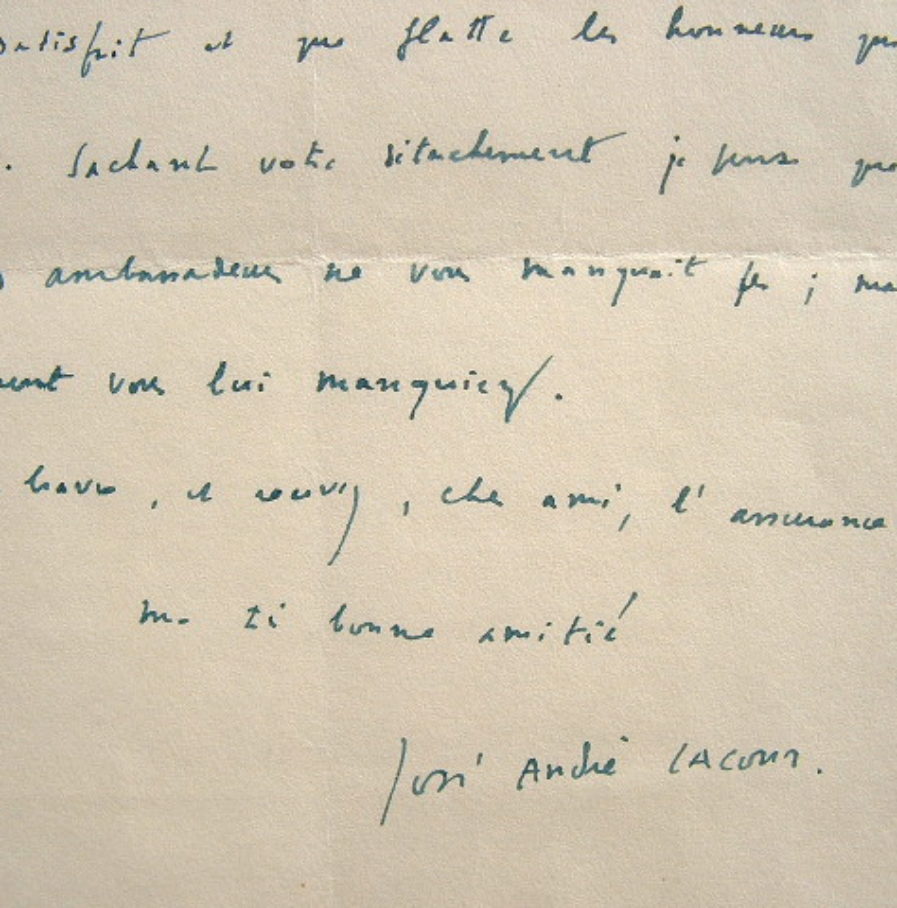 satisfait et que flatte les honneurs que
. Sachant votre détachement je pense que
ambassadeurs ne vous manquait pas ; ma
ment vous lui manquiez.
bravo, et recevez, cher ami, l'assurance
ma très bonne amitié
José André LACOUR.